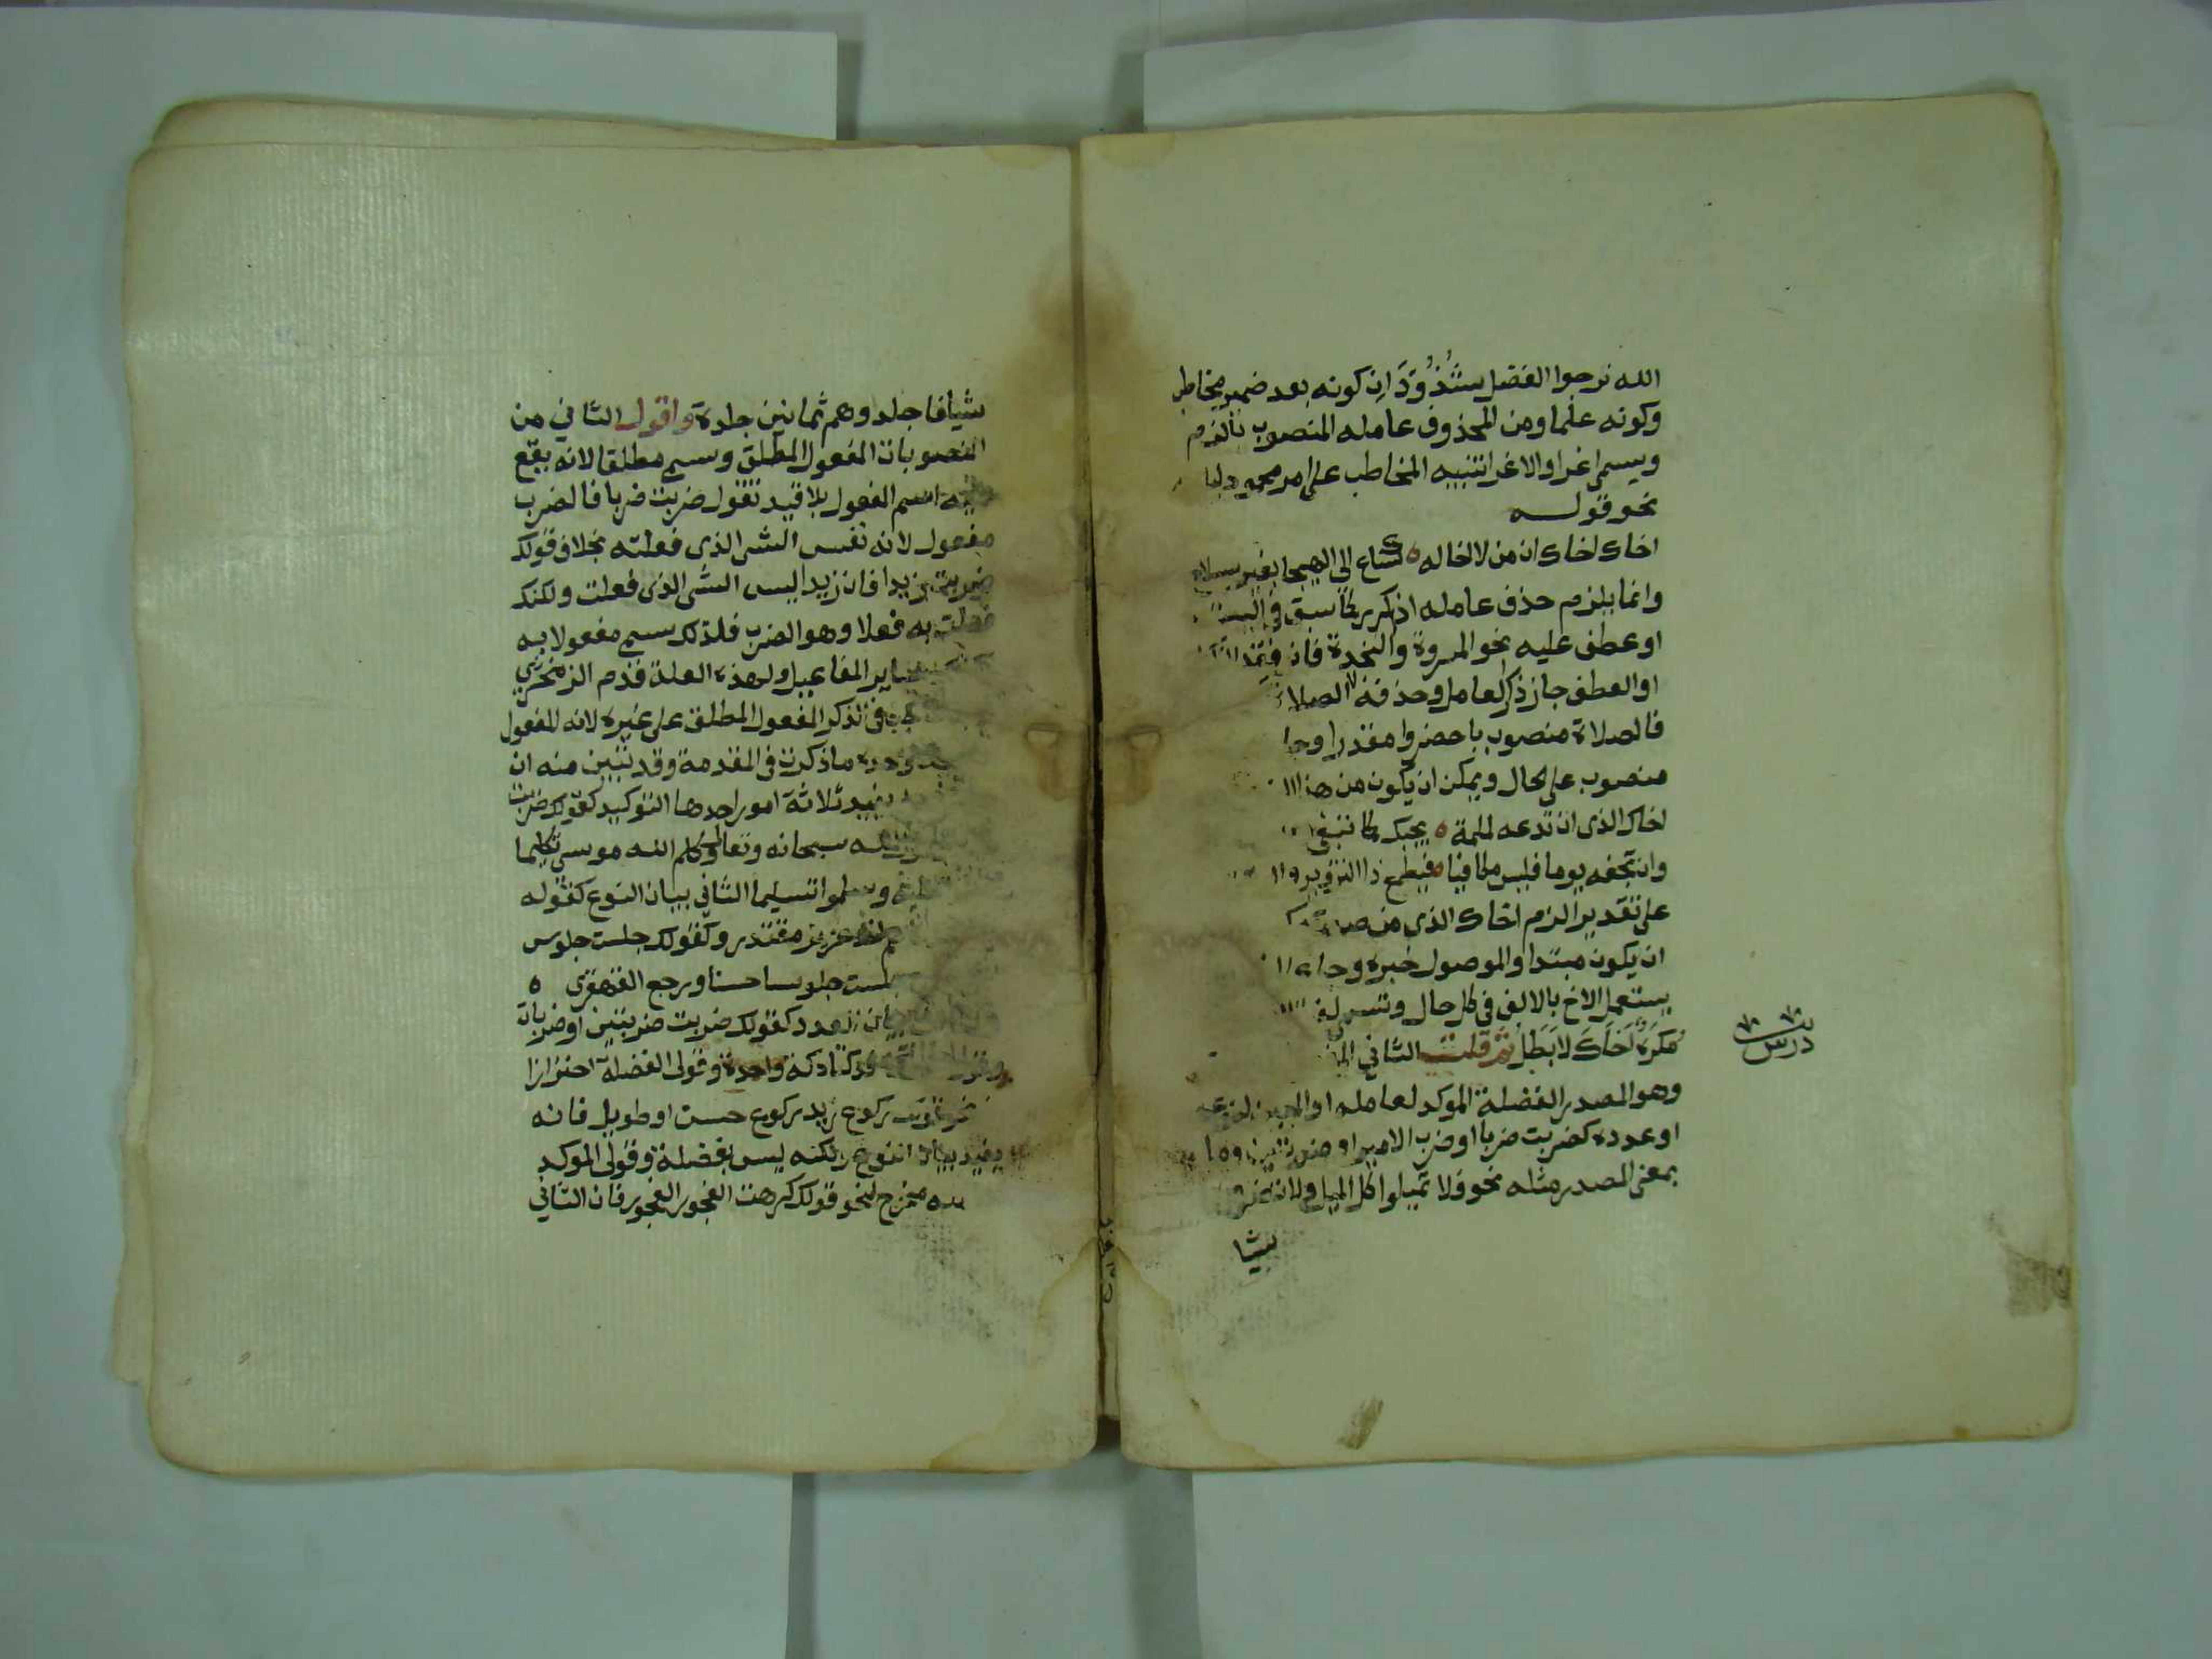 الله نرجوا الفضل شُذُوذَانِ كونه بعد ضمير مخاطب
وكونه علما ومن المحذوف عامله المنصوب بالزم
ويسمى اغرا والاغرا تنبيه المخاطب على امر محمود
نحو قوله
اخاك اخاك ان من لا اخا له ه كساع الى الهيجا بغير سلاح
وانما يلزم حذف عامله اذا كرر كما سبق في البيت
او عطف عليه نحو المروة والنجدة فان فقد
او العطف جاز ذكر العامل وحذفه الصلاة
فالصلاة منصوب باحضروا مقدرا
منصوب على الحال ويمكن ان يكون من هذا
اخاك الذي ان تدعه لملمة ه يجبك كما تبغي
وان تجفه يوما فليس مكافيا فيطمع ذا التزوير
على تقدير الزم اخاك الذي من
ان يكون مبتدا والموصول خبره وجا
يستعمل الاخ بالالف في كل حال
مُكْرَهٌ اَخَاكَ لَا بَطَل ثم قلت الثاني
وهو المصدر الفضلة الموكد لعامله او المبين لنوعه
او عدده كضربت ضربا او ضرب الامير او ضربتين وما
بمعنى المصدر مثله نحو فلا تميلوا كل الميل ولا تضروه
شيئا
درس
شيا فاجلدوهم ثمانين جلدة واقول الثاني من
المنصوبات المفعول المطلق وسمي مطلقا لانه يقع
عليه اسم المفعول بلا قيد تقول ضربت ضربا فالضرب
مفعول لانه نفس الشي الذي فعلته بخلاف قولك
ضربت زيدا فان زيدا ليس الشي الذي فعلت ولكنك
فعلت به فعلا وهو الضرب فلذلك سمي مفعولا به
ساير المفاعيل ولهذه العلة قدم الزمخشري
في الذكر المفعول المطلق على غيره لانه المفعول
وحده ما ذكرت في المقدمة وقد تبين منه ان
يفيد ثلاثة امور احدها التوكيد كقولك ضربت
الله سبحانه وتعالى وكلم الله موسى تكليما
وسلموا تسليما الثاني بيان النوع كقوله
اخذ عزيز مقتدر وكقولك جلست جلوس
جلست جلوسا حسنا ورجع القهقرى ه
بيان العدد كقولك ضربت ضربتين او ضربات
فدكتا دكة واحدة وقولي الفضلة احترازا
ركوع زيد ركوع حسن او طويل فانه
يفيد بيان النوع ولكنه ليس بفضلة وقولي الموكد
مخرج لنحو قولك كرهت الفجور الفجور فان الثاني